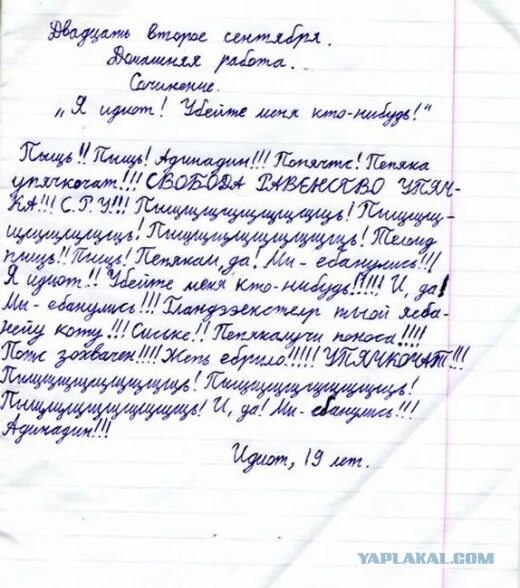 Двадцать второе сентября.
Домашняя работа.
Сочинение.
„Я идиот! Убейте меня кто-нибудь!“
Пыщь!! Пыщь! Адинадин!!! Попячтс! Пепяка
упячкочат!!! СВОБОДА РАВЕНСТВО УПЯЧ-
КА!!! С.Р.У!!! Пыщщщщщщщщщщщь! Пыщщщ-
щщщщщщщщь! Пыщщщщщщщщщщщь! Телоид
пыщь!! Пыщь! Пепякам, да! Ми-ебанулись!!!
Я идиот!! Убейте меня кто-нибудь!!!!! И, да!
Ми-ебанулись!!! Гландэээкстелр
кожу.!!! Сиське!! Пепякалучи поноса!!!!
Потс зохвачен!!!! Жепь ебрило!!!!! УПЯЧКОЧАТ!!!
Пыщщщщщщщщщщь! Пыщщщщщщщщщщщь!
Пыщщщщщщщщщщщь! И, да! Ми-ебанулись!!!
Адинадин!!!
Идиот, 19 лет.
YAPLAKAL.COM